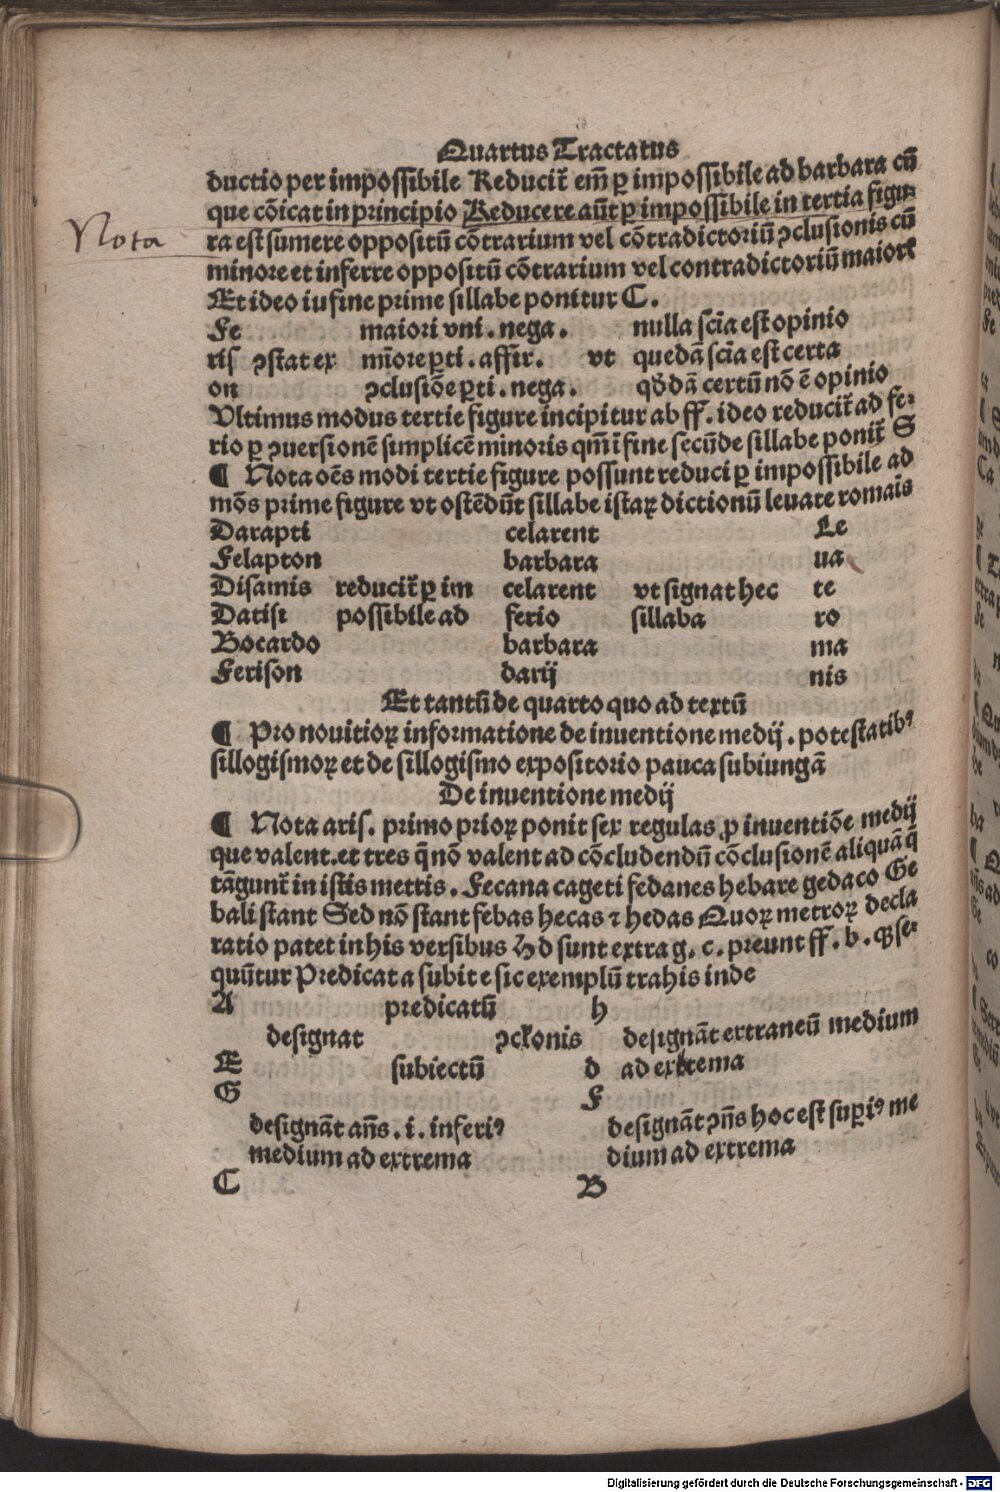 Quartus Tractatus
ductio per impossibile Reducit᷑ em̄ ꝑ impossibile ad barbara cū
que cōicat in principio Reducere aūt ꝑ impossibile in tertia figu⸗
Nota
ra est sumere oppositū cōtrarium vel cōtradictoriū ꝯclusionis cū
minore et inferre oppositū cōtrarium vel contradictoriū maior᷑
Et ideo iu fine prime sillabe ponitur C.
Fe maiori vni. nega. nulla scīa est opinio
ris ꝯstat ex mīore ꝑti. affir. vt quedā scīa est certa
on ꝯclusiōe ꝑti. nega. qd̄dā certū nō ē opinio
Vltimus modus tertie figure incipitur ab ff. ideo reducit᷑ ad fe⸗
rio ꝑ ꝯuersionē simplicē minoris qm̄ ī fine secūde sillabe ponit᷑ S
¶ Nota oēs modi tertie figure possunt reduci ꝑ impossibile ad
mōs prime figure vt ostēdūt sillabe istaꝝ dictionū leuate romāis
Darapti celarent Le
Felapton barbara ua
Disamis reducit᷑ ꝑ im celarent vt signat hec te
Datisi possibile ad ferio sillaba ro
Bocardo barbara ma
Ferison darij nis
Et tantū de quarto quo ad textū
¶ Pro nouitioꝝ informatione de inuentione medij. potestatibꝰ
sillogismoꝝ et de sillogismo expositorio pauca subiungā
De inuentione medij
¶ Nota aris. primo prioꝝ ponit sex regulas ꝓ inuentiōe medij
que valent. et tres q̄ nō valent ad cōcludendū cōclusionē aliquā q̄
tāgunt᷑ in istis mettis. Fecana cageti fedanes hebare gedaco Ge
bali stant Sed nō stant febas hecas ⁊ hedas Quoꝝ metroꝝ decla
ratio patet in his versibus H d sunt extra g. c. preunt ff. b. qꝫ se⸗
quūtur Predicat a subit e sic exemplū trahis inde
A predicatū h
designat ꝯclōnis designāt extraneū medium
E subiectū d ad extrema
G F
designāt an̄s. i. inferiꝰ designāt ꝯn̄s hoc est suꝑiꝰ me
medium ad extrema dium ad extrema
C B
Digitalisierung gefördert durch die Deutsche Forschungsgemeinschaft - DFG